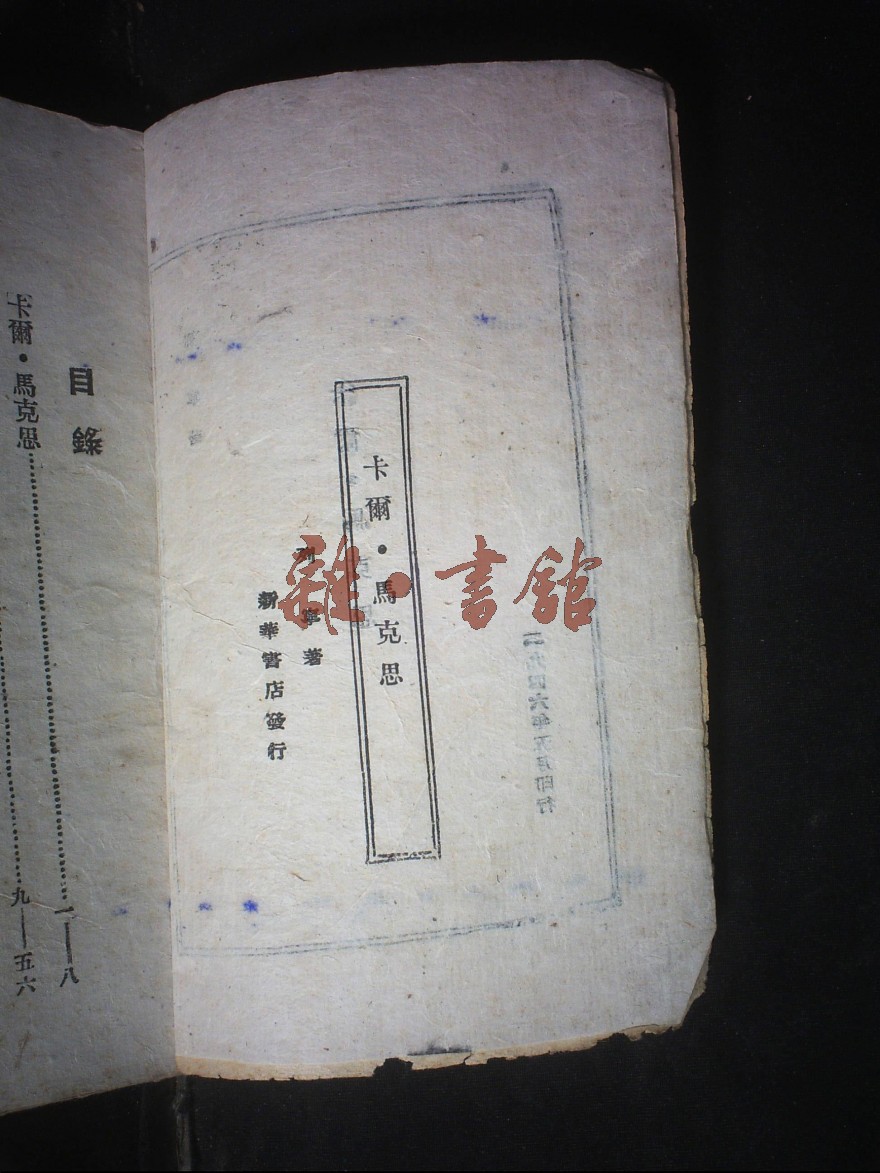 卡爾•馬克思
列寧著
新華書店發行
雜•書館
目錄
卡爾•馬克思……一——八
……九——五六